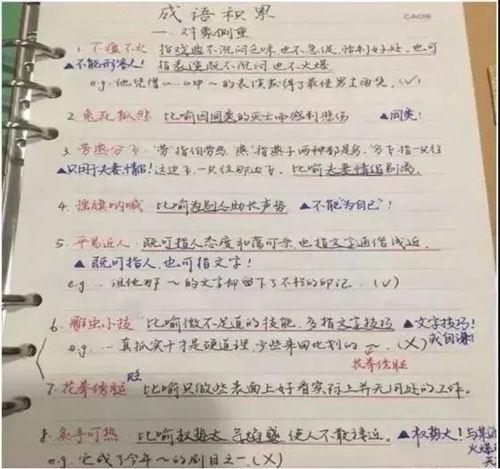 成语积累
CAGIE
一. 对象侧重
1. 不瘟不火 指戏曲不沉闷乏味也不急促,恰到好处,也可
▲不能形容人! 指表演既不沉闷也不火爆.
e.g. 他凭借……中~的表演获得了最佳男主角奖。(√)
2. 兔死狐悲 比喻因同类的灭亡而感到悲伤 ▲同类!
3. 劳燕分飞 "劳"指伯劳鸟,"燕"指燕子两种都是鸟,"分飞"指一只往
▲只用于夫妻情侣! 这边飞,一只往那边飞。比喻夫妻情侣别离。
4. 摇旗呐喊 比喻为别人助长声势 ▲不能"为自己"!
5. 平易近人 既可指人态度和蔼可亲,也指文字通俗浅近。
▲既可指人,也可指文字!
e.g... 但他那~的文字却留下了不朽的印记。(√)
6. 雕虫小技 比喻微不足道的技能,多指文字技巧 ▲文字技巧!
e.g... 真抓实干才是硬道理,少些来回比划的~。(×) 或自谦!
花拳绣腿
7. 花拳绣腿 比喻只做些表面上好看实际上并无用处的工作。
8. 炙手可热 比喻权势大,气焰盛,使人不敢接近。 ▲权势大!
e.g. 它成了今年~的剧目之一。(×)